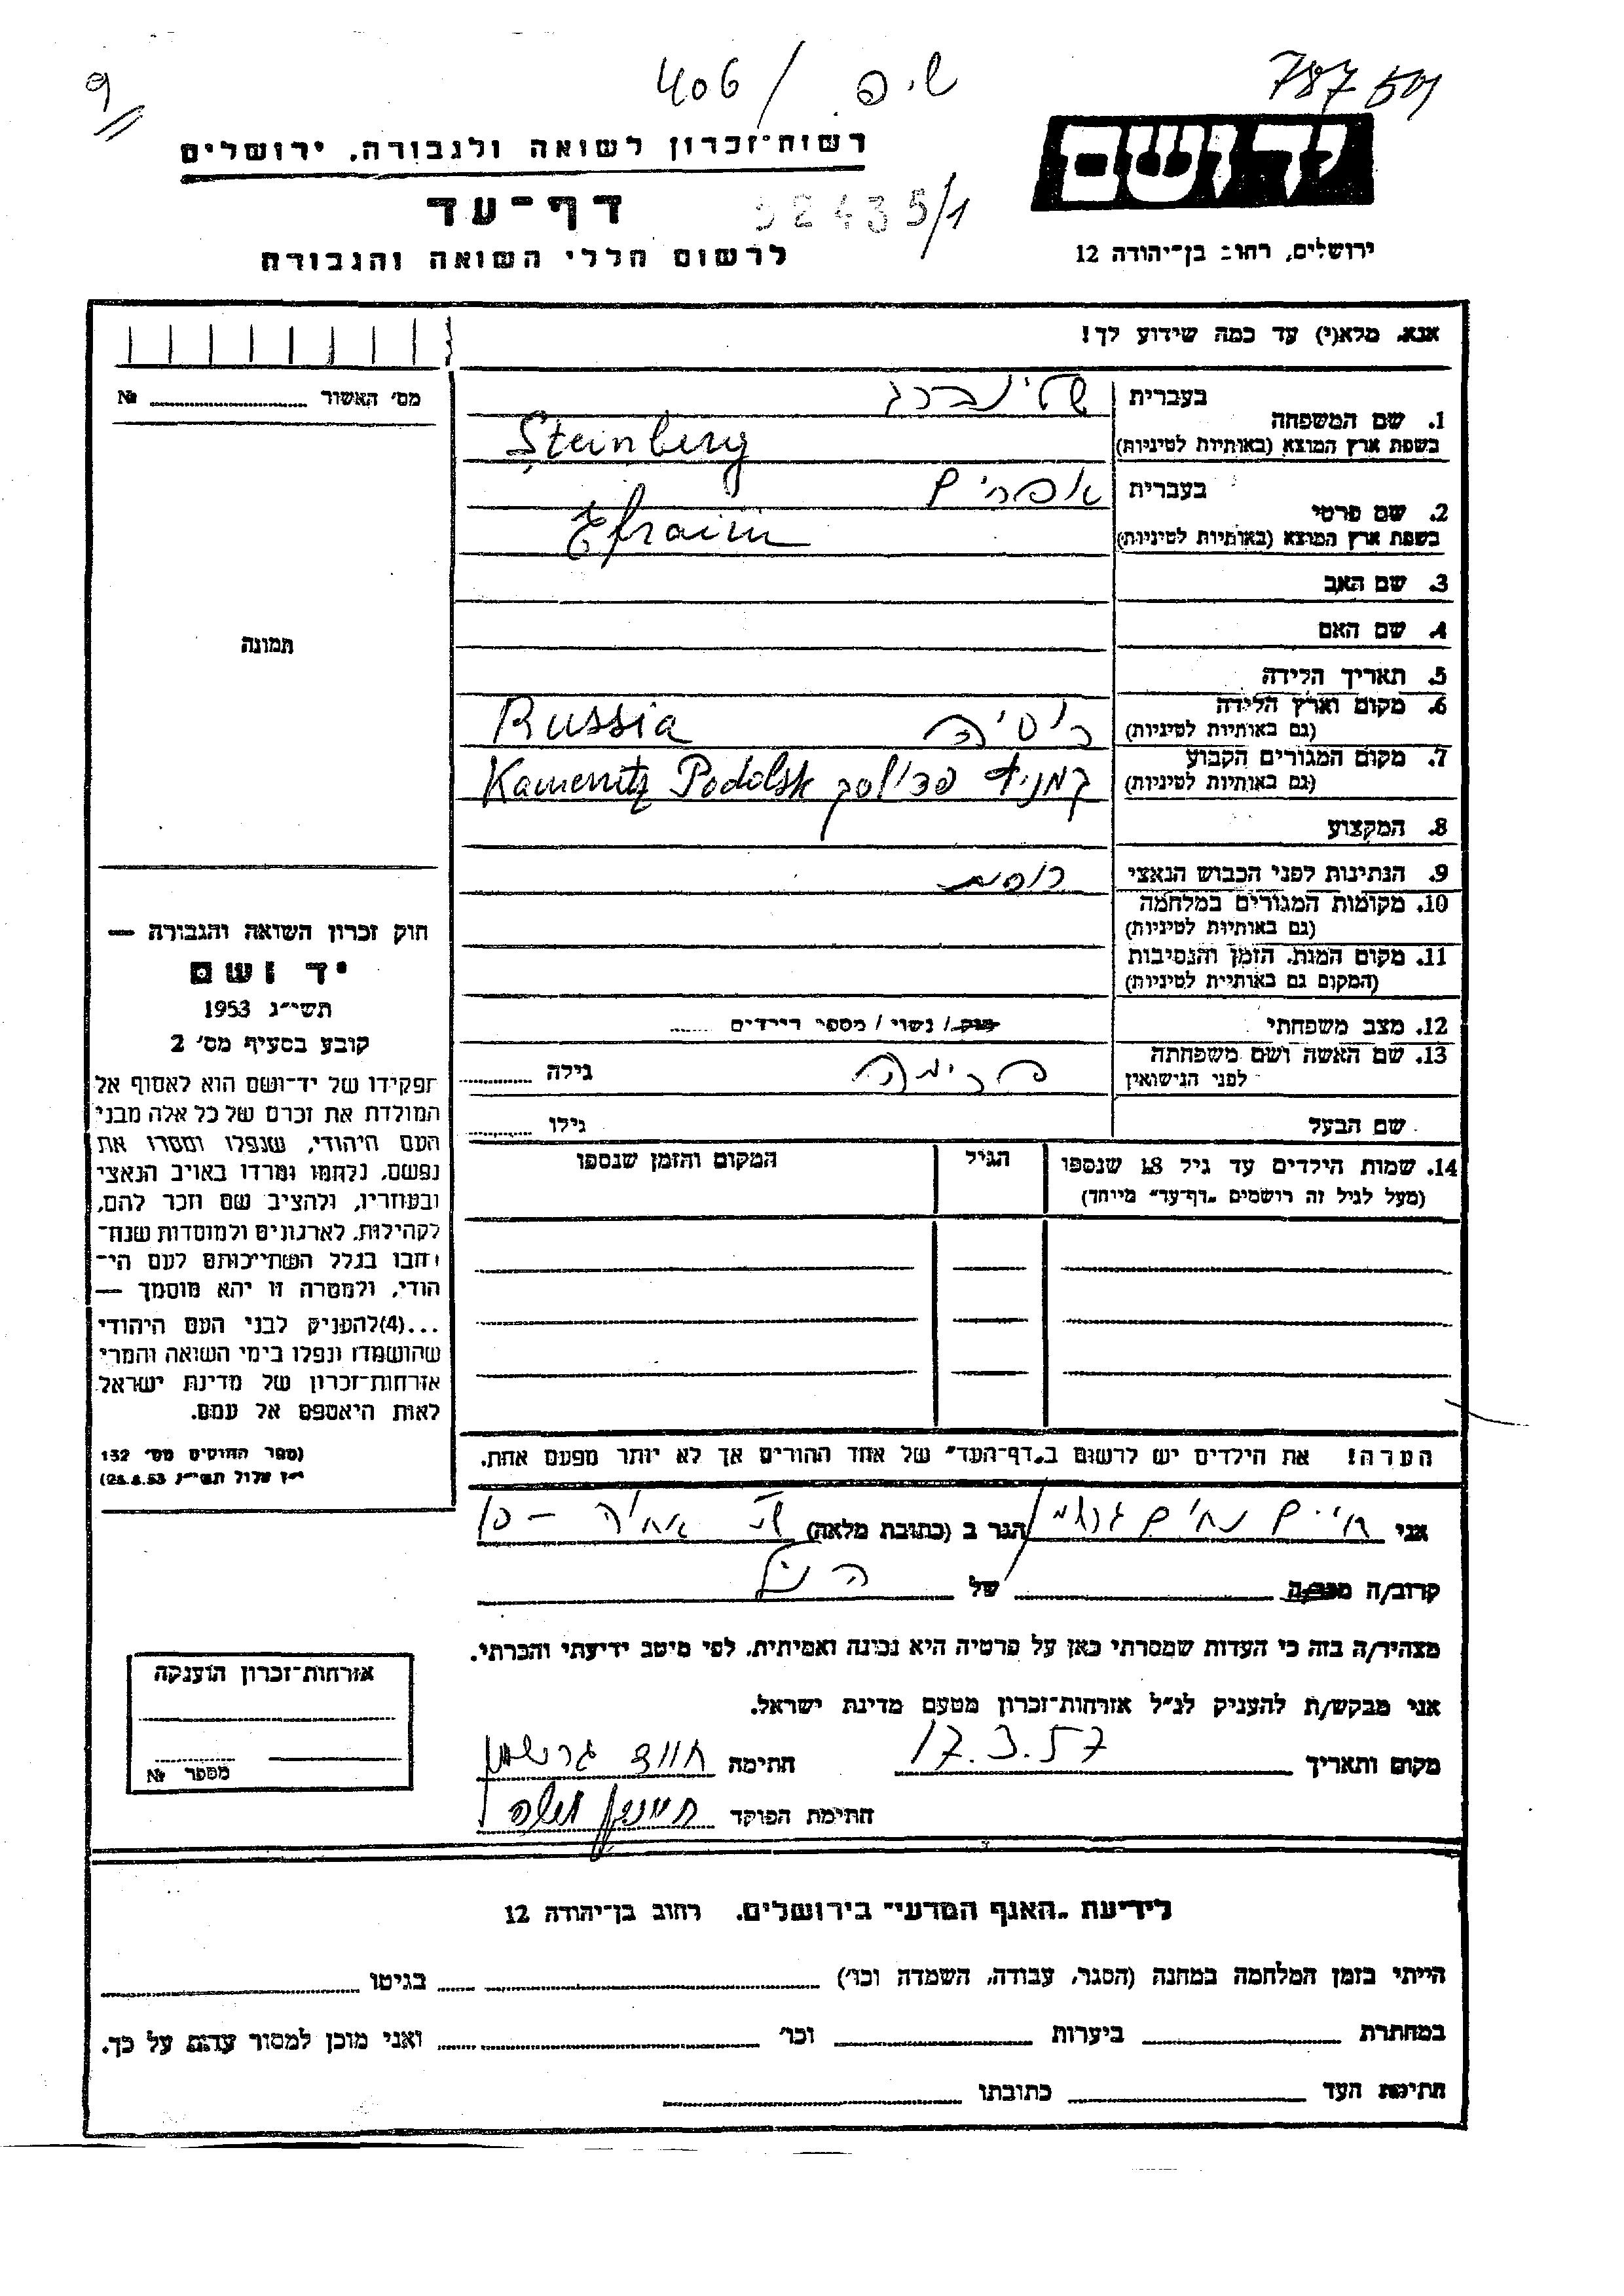 9
406 / ש. פ
787 501
רשות־זכרון לשואה ולגבורה, ירושלים
יד ושם
דף־עד
52435/1
לרשום חללי השואה והגבורה
ירושלים, רחוב בן־יהודה 12
אנא, מלא(י) עד כמה שידוע לך!
מס׳ האשור № 
בעברית שטינברג
1. שם המשפחה
בשפת ארץ המוצא (באותיות לטיניות) Steinberg
בעברית אפרים
2. שם פרטי
בשפת ארץ המוצא (באותיות לטיניות) Efraim
3. שם האב
4. שם האם
תמונה
5. תאריך הלידה
6. מקום וארץ הלידה רוסיה Russia
(גם באותיות לטיניות)
7. מקום המגורים הקבוע קמניץ פודולסק Kamenitz Podolsk
(גם באותיות לטיניות)
8. המקצוע
9. הנתינות לפני הכבוש הנאצי רוסית
10. מקומות המגורים במלחמה
(גם באותיות לטיניות)
11. מקום המות, הזמן והנסיבות
(המקום גם באותיות לטיניות)
12. מצב משפחתי רוק / נשוי / מספר הילדים
13. שם האשה ושם משפחתה
לפני הנישואין גילה
שם הבעל גילו
14. שמות הילדים עד גיל 18 שנספו הגיל המקום והזמן שנספו
(מעל לגיל זה רושמים „דף־עד״ מיוחד)
חוק זכרון השואה והגבורה —
יד ושם
תשי״ג 1953
קובע בסעיף מס׳ 2
תפקידו של יד־ושם הוא לאסוף אל
המולדת את זכרם של כל אלה מבני
העם היהודי, שנפלו ומסרו את
נפשם, נלחמו ומרדו באויב הנאצי
ובעוזריו, ולהציב שם וזכר להם,
לקהילות, לארגונים ולמוסדות שנח־
רבו בגלל השתייכותם לעם הי־
הודי, ולמטרה זו יהא מוסמך —
...(4)להעניק לבני העם היהודי
שהושמדו ונפלו בימי השואה והמרי
אזרחות־זכרון של מדינת ישראל
לאות היאספם אל עמם.
(ספר החוקים מס׳ 132
י״ז אלול תשי״ג 28.8.53)
הערה! את הילדים יש לרשום ב„דף־העד״ של אחד ההורים אך לא יותר מפעם אחת.
אני חיים הגר ב (כתובת מלאה)
קרוב/ה מכר/ה של הנ״ל
מצהיר/ה בזה כי העדות שמסרתי כאן על פרטיה היא נכונה ואמיתית, לפי מיטב ידיעתי והכרתי.
אני מבקש/ת להעניק לנ״ל אזרחות־זכרון מטעם מדינת ישראל.
מקום ותאריך 17.3.57 חתימה
חתימת הפוקד
אזרחות־זכרון הוענקה
מספר №
לידיעת „האגף המדעי״ בירושלים, רחוב בן־יהודה 12
הייתי בזמן המלחמה במחנה (הסגר, עבודה, השמדה וכו׳) בגיטו
במחתרת ביערות וכו׳ ואני מוכן למסור עדות על כך.
חתימת העד כתובתו